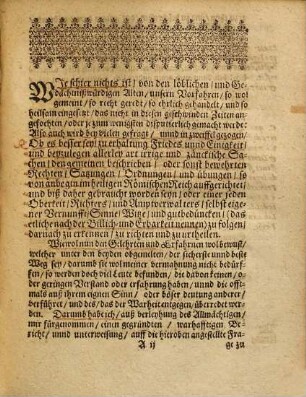 WIe schier nichts ist / von den löblichen / und Ge-
dächtnißwürdigen Alten / unsern Vorfahren / so wol
gemeint / so recht geredt / so ehrlich gehandelt / und so
heilsam eingesetzt / das nicht in diesen geschwinden Zeiten an-
gefochten / oder je zum wenigsten disputierlich gemacht werde:
Also auch wird bey vielen gefragt / und in zweiffel gezogen /
Ob es besser sey / zu erhaltung Friedes unnd Einigkeit /
und beyzulegen allerley art irrige und zänckische Sa-
chen / den gemeinen beschrieben / oder sonst bewehrten
Rechten / Satzungen / Ordnungen / und übungen / so
von anbegin im heiligen Römischen Reich auffgerichtet /
und biß daher gebraucht worden seyn / oder einer jeden
Oberkeit / Richters / und Amptverwalters / selbst eige-
ner Vernunfft / Sinne / Witze / und gutbedüncken / (das
etliche nach der Billich- und Erbarkeit nennen /) zu folgen /
darnach zu erkennen / zu richten und zu urtheilen.
Wiewol nun bey Gelehrten und Erfahrnen wolbewust /
welcher unter den beyden obgemelten / der sicherste unnd beste
Weg sey / darum sie wol meiner vermahnung nicht bedürf-
fen / so werden doch viel Leute befunden / die davon keinen / o-
der geringen Verstand oder erfahrung haben / unnd die offt-
mals auß ihrem eignen Sinn / oder böser deutung anderer /
verführt / und des / das der Warheit entgegen / überredet wer-
den. Darumb hab ich / auß verleyhung des Allmächtigen /
mir fürgenommen / einen gegründten / warhafftigen Be-
richt / unnd unterweisung / auff die hieroben angestellte Fra-
A ij ge zu